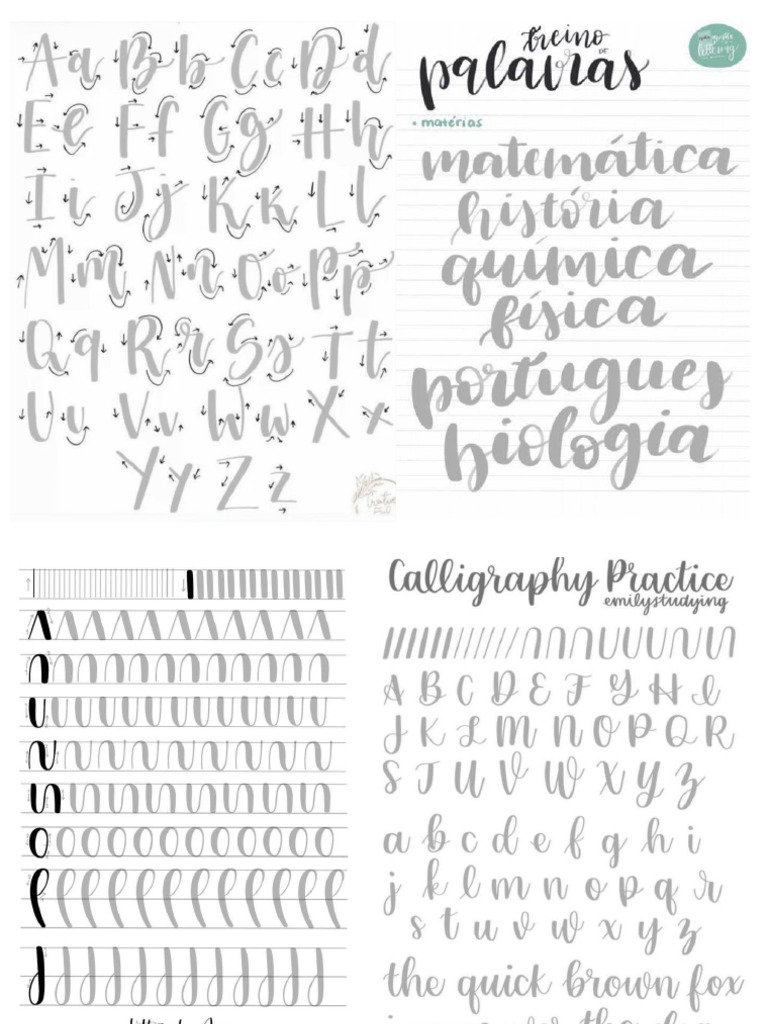 Aa Bb Cc Dd
Ee Ff Gg Hh
Ii Jj Kk Ll
Mm Nn Oo Pp
Qq Rr Ss Tt
Uu Vv Ww Xx
Yy Zz
treino
DE
palavras
lettering
• matérias
matemática
história
química
física
portugues
biologia
Calligraphy Practice
emilystudying
A B C D E F G H I
J K L M N O P Q R
S T U V W X Y Z
a b c d e f g h i
j k l m n o p q r
s t u v w x y z
the quick brown fox